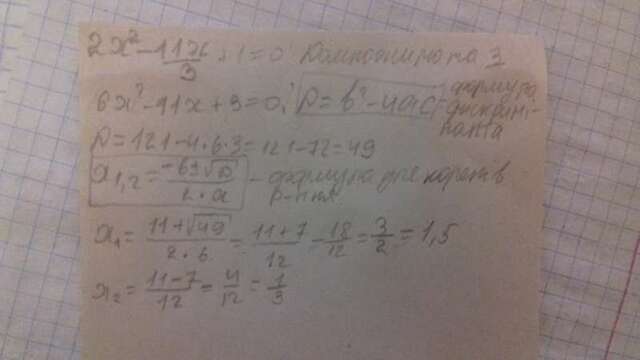 2x² - 11x/3 + 1 = 0 Домножило на 3
6x² - 11x + 3 = 0; D = b² - 4ac - формула дискриминанта
D = 121 - 4·6·3 = 121 - 72 = 49
x₁,₂ = -b±√D / 2·a - формула для корней
x₁ = 11+√49 / 2·6 = 11+7 / 12 = 18/12 = 3/2 = 1,5
x₂ = 11-7 / 12 = 4/12 = 1/3